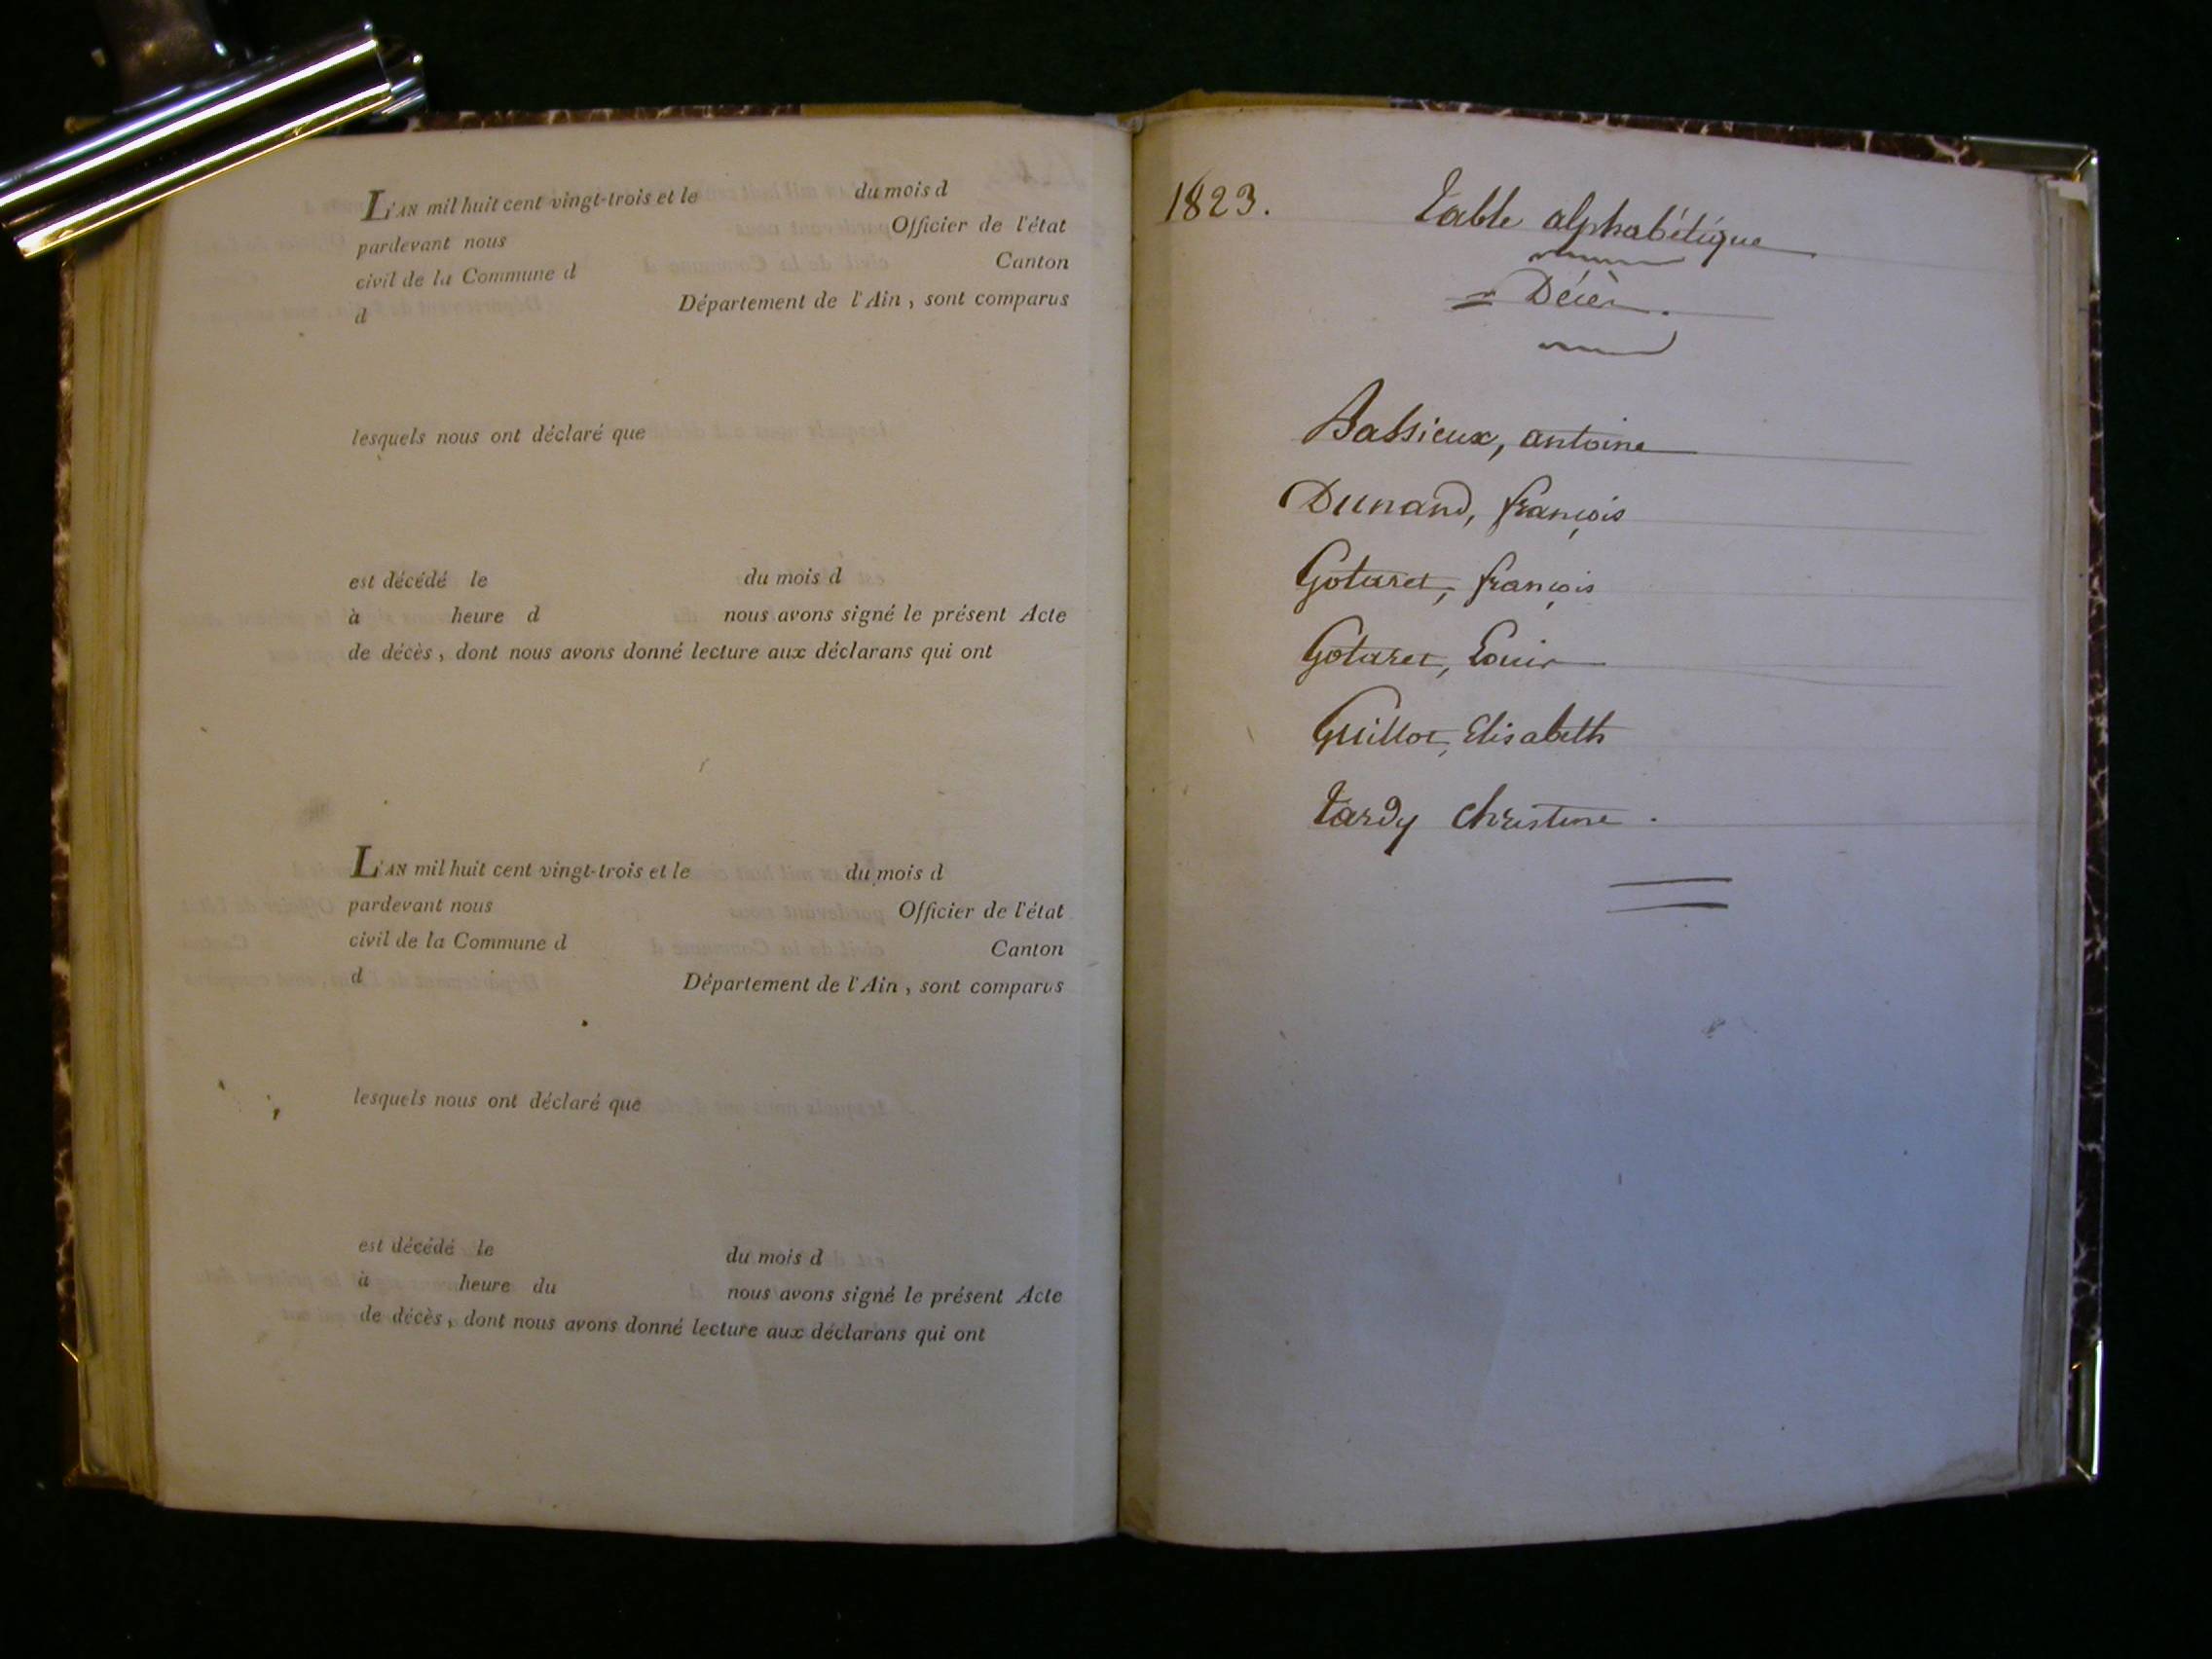 L'AN mil huit cent vingt-trois et le du mois d
pardevant nous Officier de l'état
civil de la Commune d Canton
d Département de l'Ain, sont comparus
lesquels nous ont déclaré que
est décédé le du mois d
à heure d nous avons signé le présent Acte
de décès, dont nous avons donné lecture aux déclarans qui ont
L'AN mil huit cent vingt-trois et le du mois d
pardevant nous Officier de l'état
civil de la Commune d Canton
d Département de l'Ain, sont comparus
lesquels nous ont déclaré que
est décédé le du mois d
à heure du nous avons signé le présent Acte
de décès, dont nous avons donné lecture aux déclarans qui ont
1823. Table alphabétique
Décès.
Bassieux, antoine
Dunand, françois
Goturet, françois
Goturet, Louis
Guillot, Elisabeth
Tardy christine.